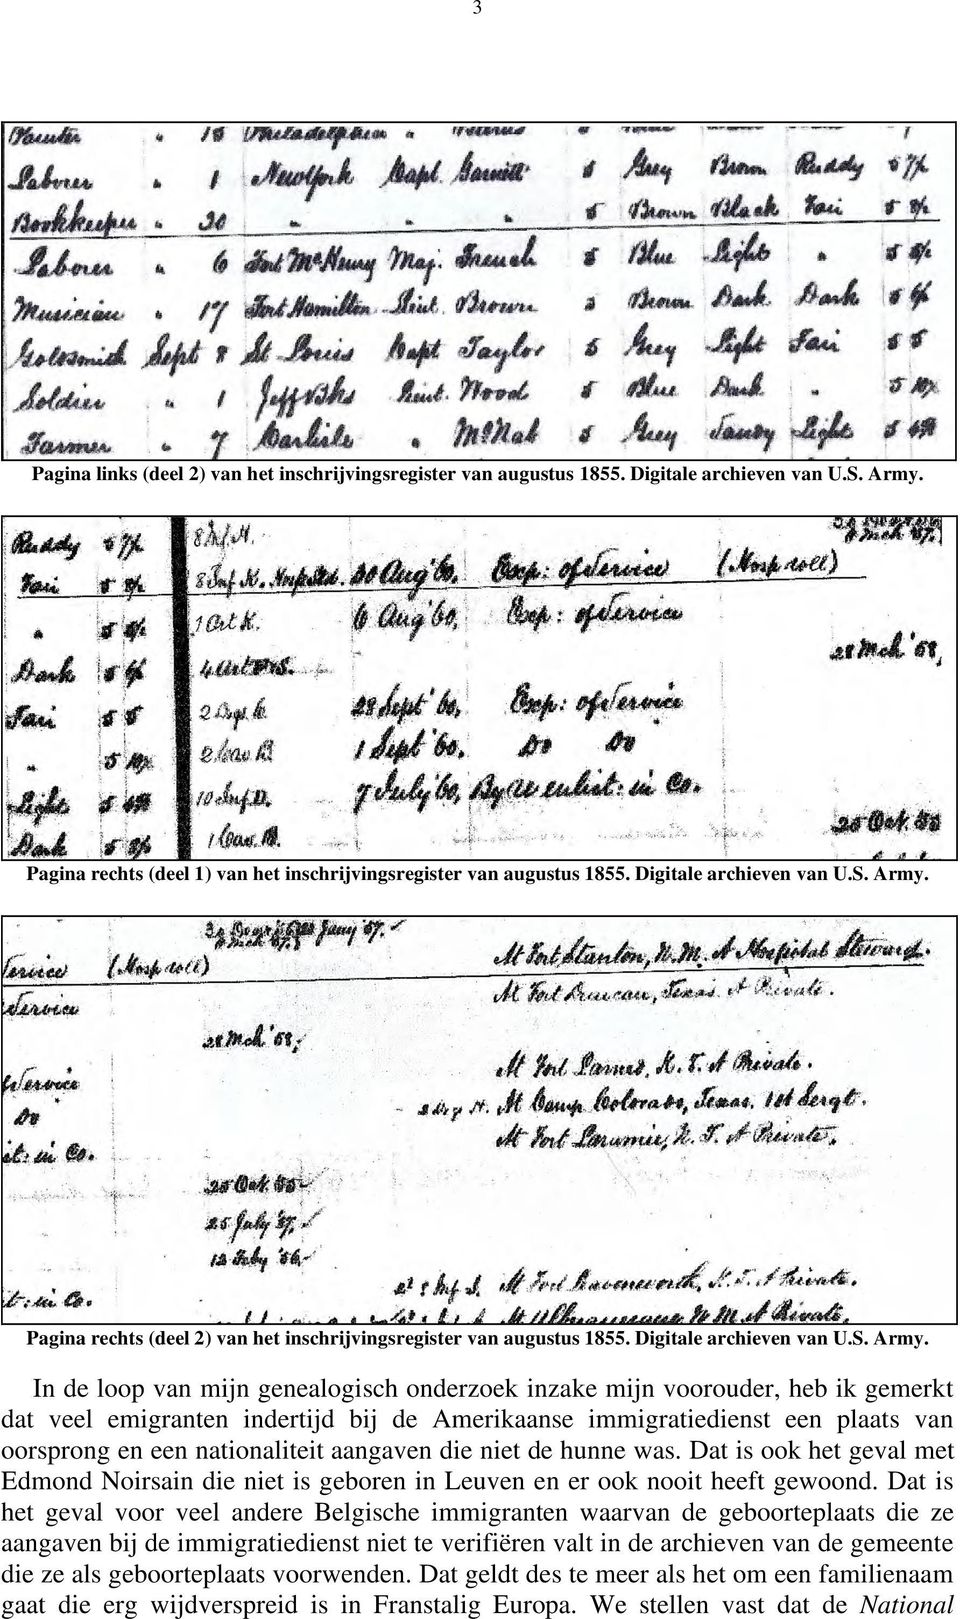 3
" 15 Philadelphia " 5
Laborer " 1 NewYork Capt. Garnett 5 Grey Brown Ruddy 5 7½
Bookkeeper " 30 " " " 5 Brown Black Fair 5 8½
Laborer " 6 Fort McHenry Maj. French 5 Blue Light " 5
Musician " 17 Fort Hamilton Lieut. Brown 5 Brown Dark Dark 5 6½
Goldsmith Sept 8 St Louis Capt Taylor 5 Grey Light Fair 5 5
Soldier " 1 Jeff Bks Lieut. Wood 5 Blue Dark " 5
Farmer " 7 Carlisle " McNab 5 Grey Sandy Light 5
Pagina links (deel 2) van het inschrijvingsregister van augustus 1855. Digitale archieven van U.S. Army.
Ruddy 5 7½ 8 Inf. H.
Fair 5 8½ 8 Inf. K. Hosp Std. 20 Aug '60. Exp: of Service (Hosp roll)
" 5 1 Art K. 6 Aug '60. Exp: of Service
28 Mch '58,
Dark 5 6½ 4 Art
Fair 5 5 28 Sept '60. Exp: of Service
" 5 2 Cav B. 1 Sept '60. Do Do
Light 5 10 Inf. D. 7 July '60, By Re enlist: in Co.
Dark 5 8½ 1 Cav. 25 Oct. 55
Pagina rechts (deel 1) van het inschrijvingsregister van augustus 1855. Digitale archieven van U.S. Army.
Service (Hosp roll) At Fort Stanton, N.M. A Hospital Steward.
of Service At Fort Duncan, Texas. A Private.
28 Mch '58,
of Service At Fort Larned, K. T. A Private.
Do At Camp Colorado, Texas. 1st Sergt.
ist: in Co. At Fort Laramie, N. T. A Private.
25 Oct. 55
25 July '57.
12 Feby '56
st: in Co. At Fort Leavenworth, K. T. A Private.
N M A Private.
Pagina rechts (deel 2) van het inschrijvingsregister van augustus 1855. Digitale archieven van U.S. Army.
In de loop van mijn genealogisch onderzoek inzake mijn voorouder, heb ik gemerkt
dat veel emigranten indertijd bij de Amerikaanse immigratiedienst een plaats van
oorsprong en een nationaliteit aangaven die niet de hunne was. Dat is ook het geval met
Edmond Noirsain die niet is geboren in Leuven en er ook nooit heeft gewoond. Dat is
het geval voor veel andere Belgische immigranten waarvan de geboorteplaats die ze
aangaven bij de immigratiedienst niet te verifiëren valt in de archieven van de gemeente
die ze als geboorteplaats voorwenden. Dat geldt des te meer als het om een familienaam
gaat die erg wijdverspreid is in Franstalig Europa. We stellen vast dat de National